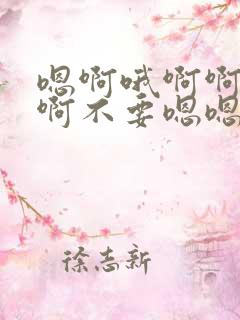 嗯啊哦啊啊
啊不要嗯嗯
徐志新